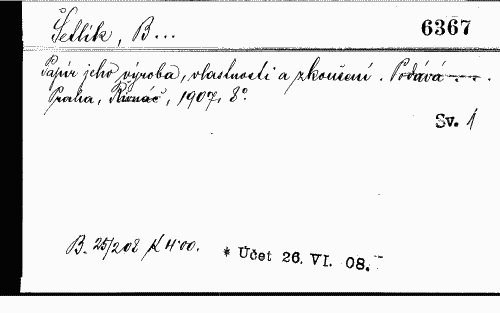 Šetlík, B...
6367
Papír jeho výroba, vlastnosti a zkoušení. Podává ....
Praha, Řivnáč, 1907, 8°.
Sv. 1
B. 25/208 K 4·00.
* Účet 26. VI. 08.